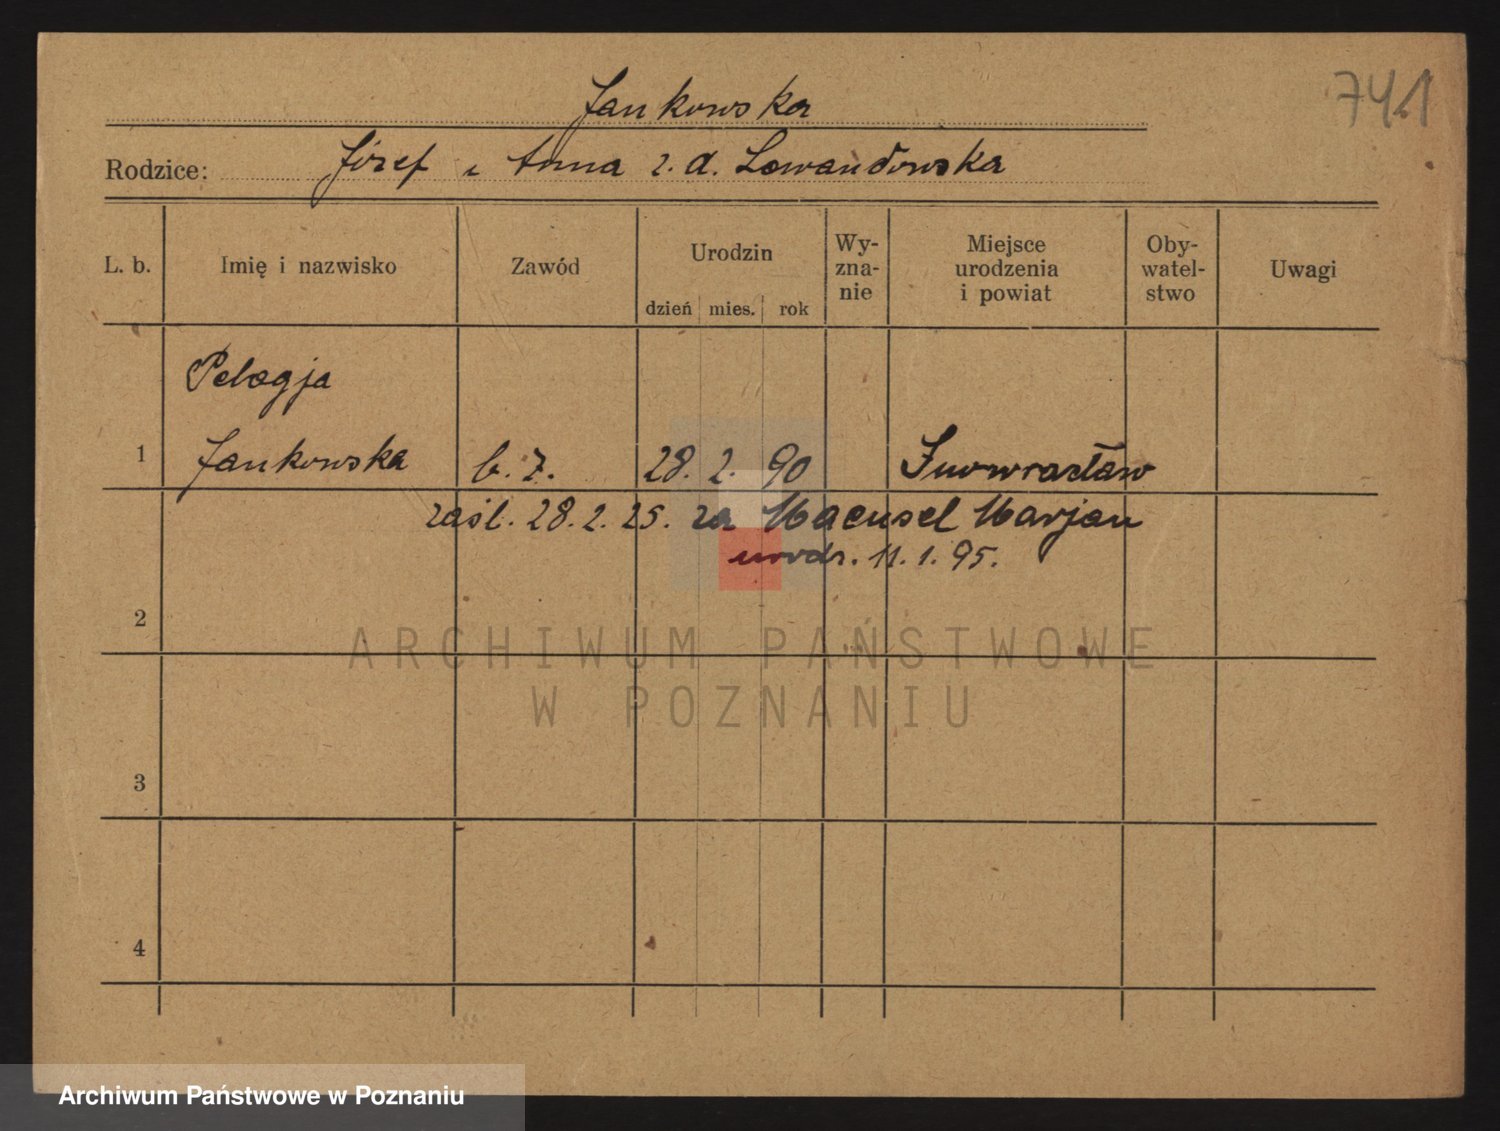 741
Jankowska
Rodzice: Józef i Anna z. d. Lewandowska
L. b. Imię i nazwisko Zawód Urodzin dzień mies. rok Wy-zna-nie Miejsce urodzenia i powiat Oby-watel-stwo Uwagi
Pelagja
1 Jankowska b. z. 28. 2. 90 Inowrocław
zaśl. 28. 2. 25. za Marjan
urodz. 11. 1. 95.
2
ARCHIWUM PAŃSTWOWE
W POZNANIU
3
4
Archiwum Państwowe w Poznaniu